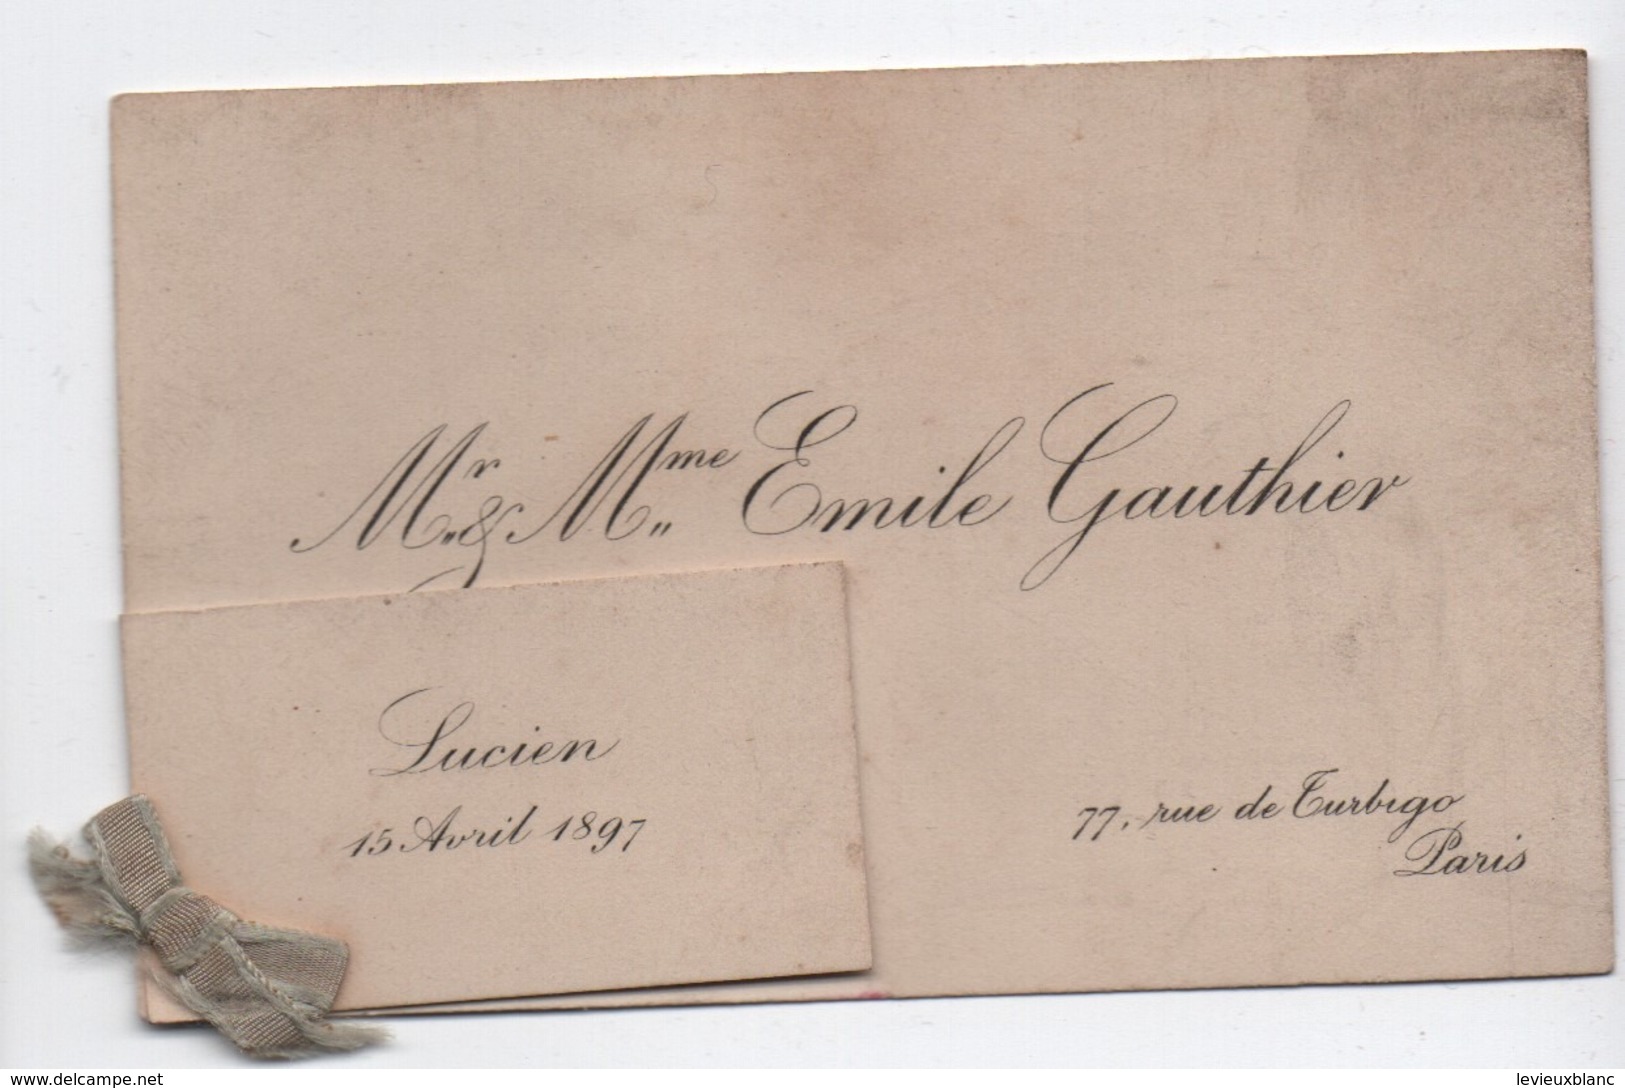 Mr. & Mme Emile Gauthier
Lucien
15 Avril 1897
77, rue de Turbigo
Paris
www.delcampe.net
levieuxblanc